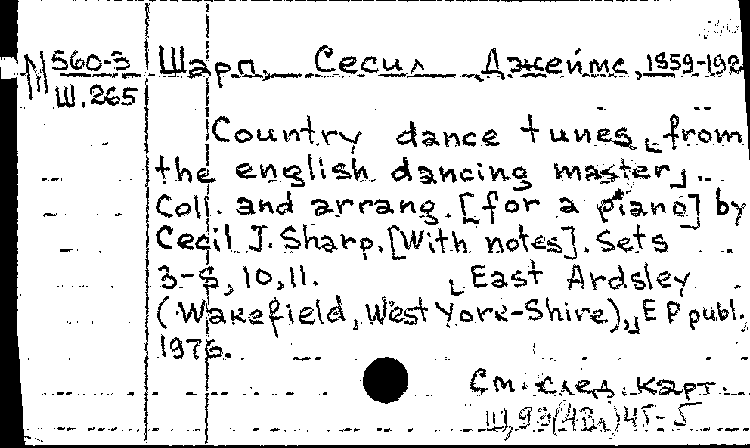 М 560-3 Шарп, Сесил Джеймс, 1859-192
Ш.265
Country dance tunes from
the english dancing master.
Coll. and arrang. [for a piano] by
Cecil J. Sharp. [With notes]. Sets
3-8, 10, 11. East Ardsley
(Wakefield, West York-Shire), EP publ.,
1976.
См. след. карт.